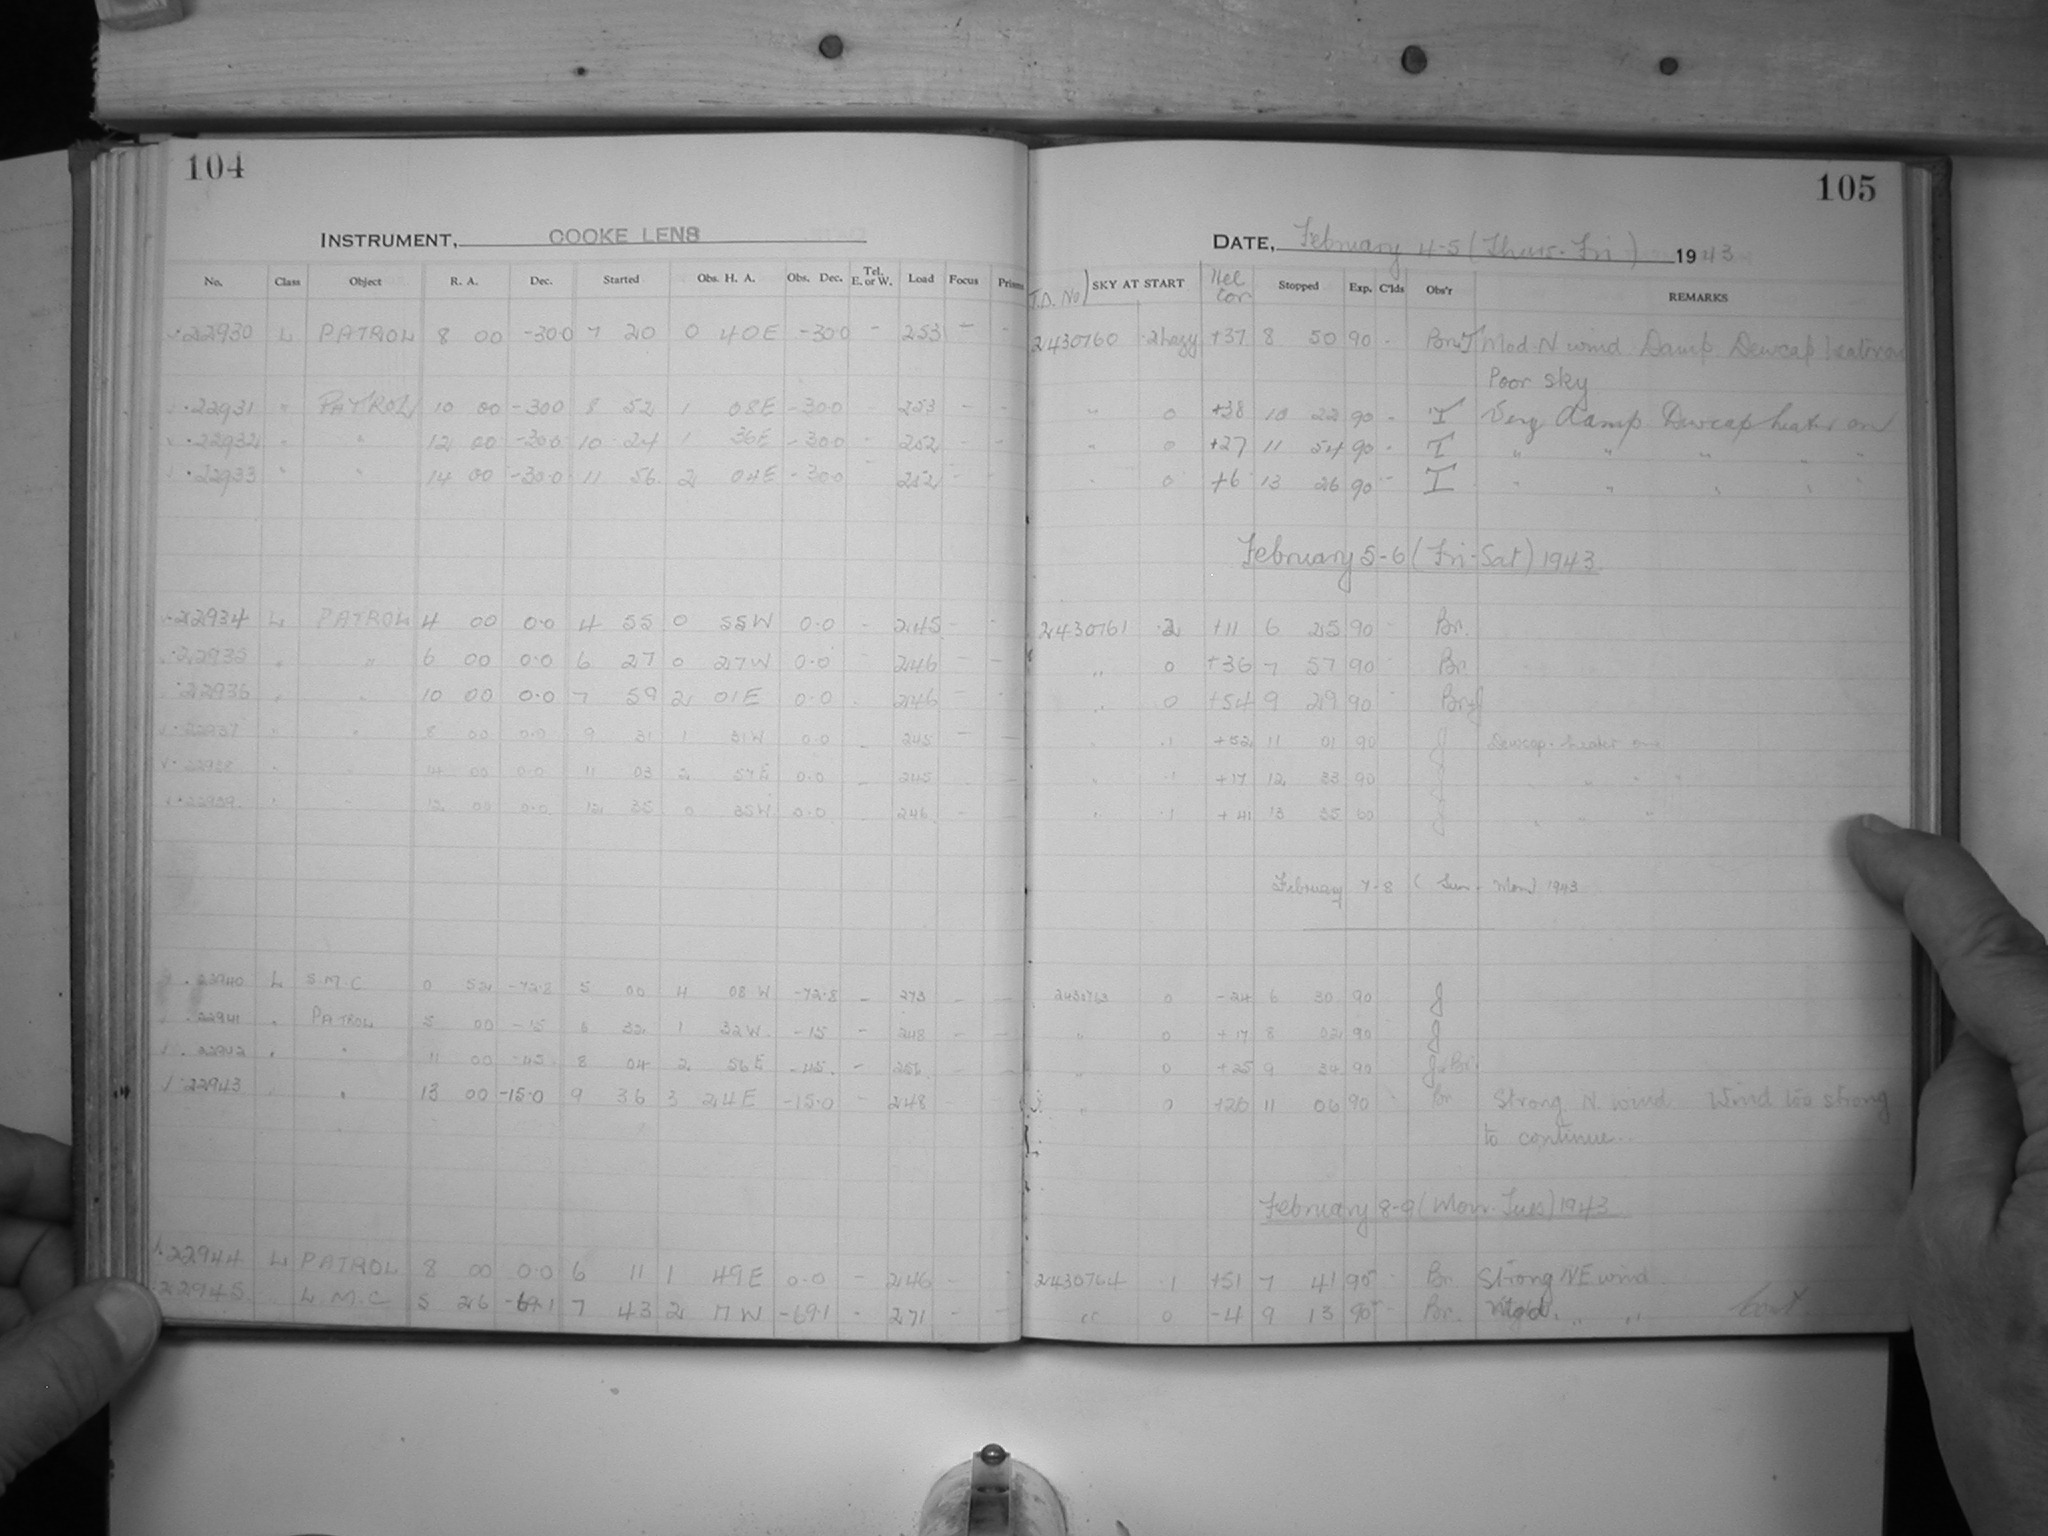 104
105
INSTRUMENT, COOKE LENS
DATE, February 4-5 (Thurs.-Fri) 1943
No. Class Object R. A. Dec. Started Obs. H. A. Obs. Dec. Tel. E. or W. Load Focus Prism J.D. No SKY AT START Hel Cor Stopped Exp. C'lds Obs'r REMARKS
22930 L PATROL 8 00 -30.0 7 20 0 40E -30.0 - 253 - - 2430760 .2 hazy +37 8 50 90 - Mod N wind Damp Dewcap heater on
Poor sky
22931 " PATROL 10 00 -30.0 8 52 1 08E -30.0 253 - - " 0 +38 10 22 90 - T Very damp Dewcap heater on
22932 " " 12 00 -30.0 10 24 1 36E -30.0 - 252 - - " 0 +27 11 54 90 - T " " " " "
22933 " " 14 00 -30.0 11 56 2 04E -30.0 - 252 - - " 0 +6 13 26 90 - T " " " " "
February 5-6 (Fri-Sat) 1943
22934 L PATROL 4 00 0.0 4 55 0 55W 0.0 - 245 - - 2430761 .2 +11 6 25 90 - Br.
22935 " " 6 00 0.0 6 27 0 27W 0.0 - 246 - - " 0 +36 7 57 90 - Br
22936 " " 10 00 0.0 7 59 2 01E 0.0 - 246 - - " 0 +54 9 29 90 - Br+J
22937 " " 8 00 0.0 9 31 1 31W 0.0 - 245 - - " .1 +52 11 01 90 J Dewcap heater on
22938 " " 14 00 0.0 11 03 2 57E 0.0 - 245 - - " .1 +17 12 33 90 J " " "
22939 " " 12 00 0.0 12 35 0 35W 0.0 - 246 - - " .1 +41 13 35 60 J " " "
February 7-8 (Sun - Mon) 1943
22940 L S.M.C 0 52 -72.8 5 00 4 08W -72.8 - 273 - - 2430763 0 -24 6 30 90 J
22941 " PATROL 5 00 -15 6 32 1 32W -15 - 248 - - " 0 +17 8 02 90 J
22942 " " 11 00 -45 8 04 2 56E -45 - 256 - - " 0 +25 9 34 90 J+Br
22943 " " 13 00 -15.0 9 36 3 24E -15.0 - 248 - - " 0 +20 11 06 90 - Br Strong N. wind Wind too strong
to continue..
February 8-9 (Mon-Tues) 1943
22944 L PATROL 8 00 0.0 6 11 1 49E 0.0 - 246 - - 2430764 .1 +51 7 41 90 - Br Strong NE wind
22945 L.M.C 5 26 -69.1 7 43 2 17W -69.1 - 271 - - " 0 -4 9 13 90 - Br. " " cont